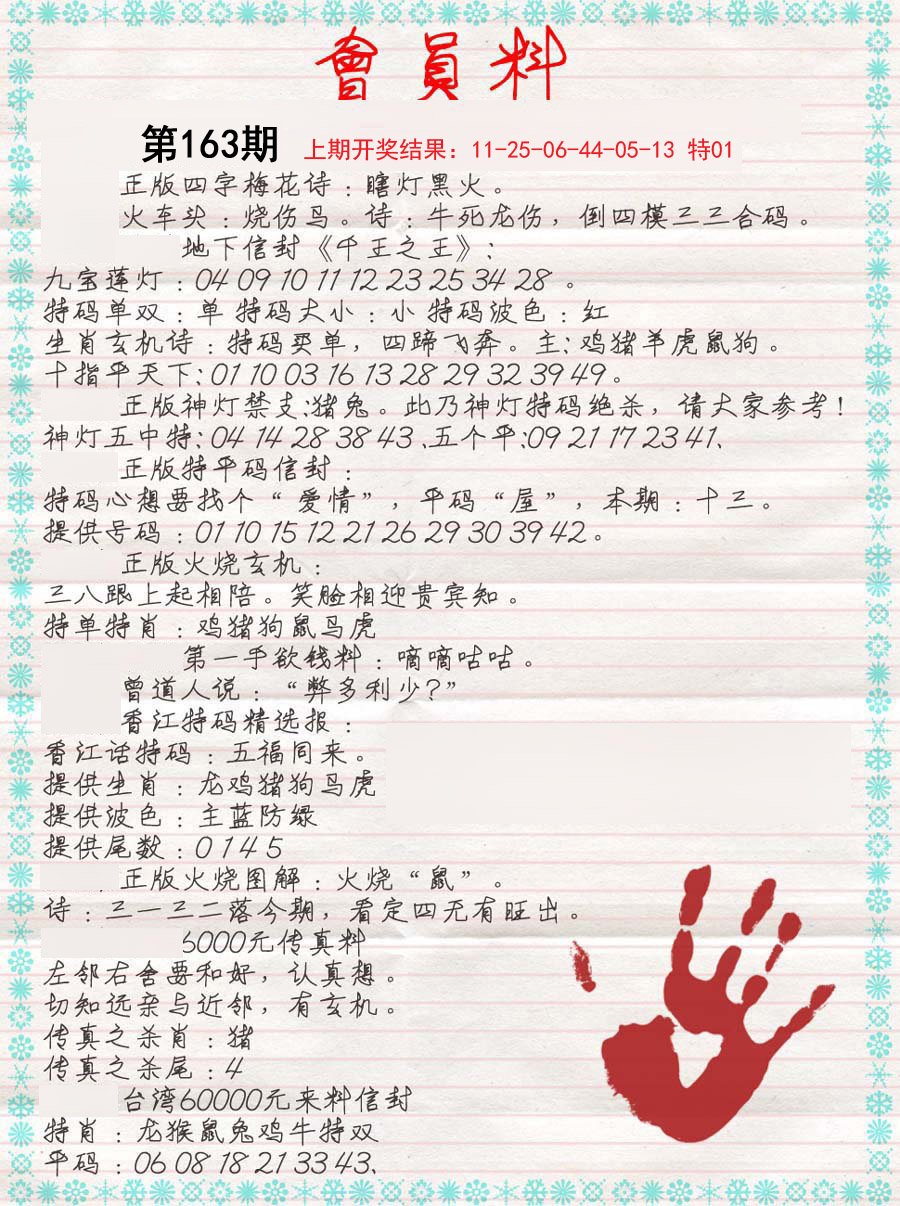 會員料
第163期 上期开奖结果：11-25-06-44-05-13 特01
正版四字梅花诗：瞎灯黑火。
火车头：烧伤鸟。诗：牛死龙伤，倒四模三三合码。
地下信封《千王之王》：
九宝莲灯：04 09 10 11 12 23 25 34 28 。
特码单双：单 特码大小：小 特码波色：红
生肖玄机诗：特码买单，四蹄飞奔。主：鸡猪羊虎鼠狗。
十指平天下：01 10 03 16 13 28 29 32 39 49。
正版神灯禁支：猪兔。此乃神灯特码绝杀，请大家参考！
神灯五中特：04 14 28 38 43、五个平：09 21 17 23 41、
正版特平码信封：
特码心想要找个“爱情”，平码“屋”，本期：十三。
提供号码：01 10 15 12 21 26 29 30 39 42。
正版火烧玄机：
三八跟上起相陪。笑脸相迎贵宾知。
特单特肖：鸡猪狗鼠马虎
第一手欲钱料：嘀嘀咕咕。
曾道人说：“弊多利少？”
香江特码精选报：
香江话特码：五福同来。
提供生肖：龙鸡猪狗马虎
提供波色：主蓝防绿
提供尾数：0 1 4 5
正版火烧图解：火烧“鼠”。
诗：三一三二落今期，看定四无有旺出。
6000元传真料
左邻右舍要和好，认真想。
切知远亲与近邻，有玄机。
传真之杀肖：猪
传真之杀尾：4
台湾60000元来料信封
特肖：龙猴鼠兔鸡牛特双
平码：06 08 18 21 33 43、